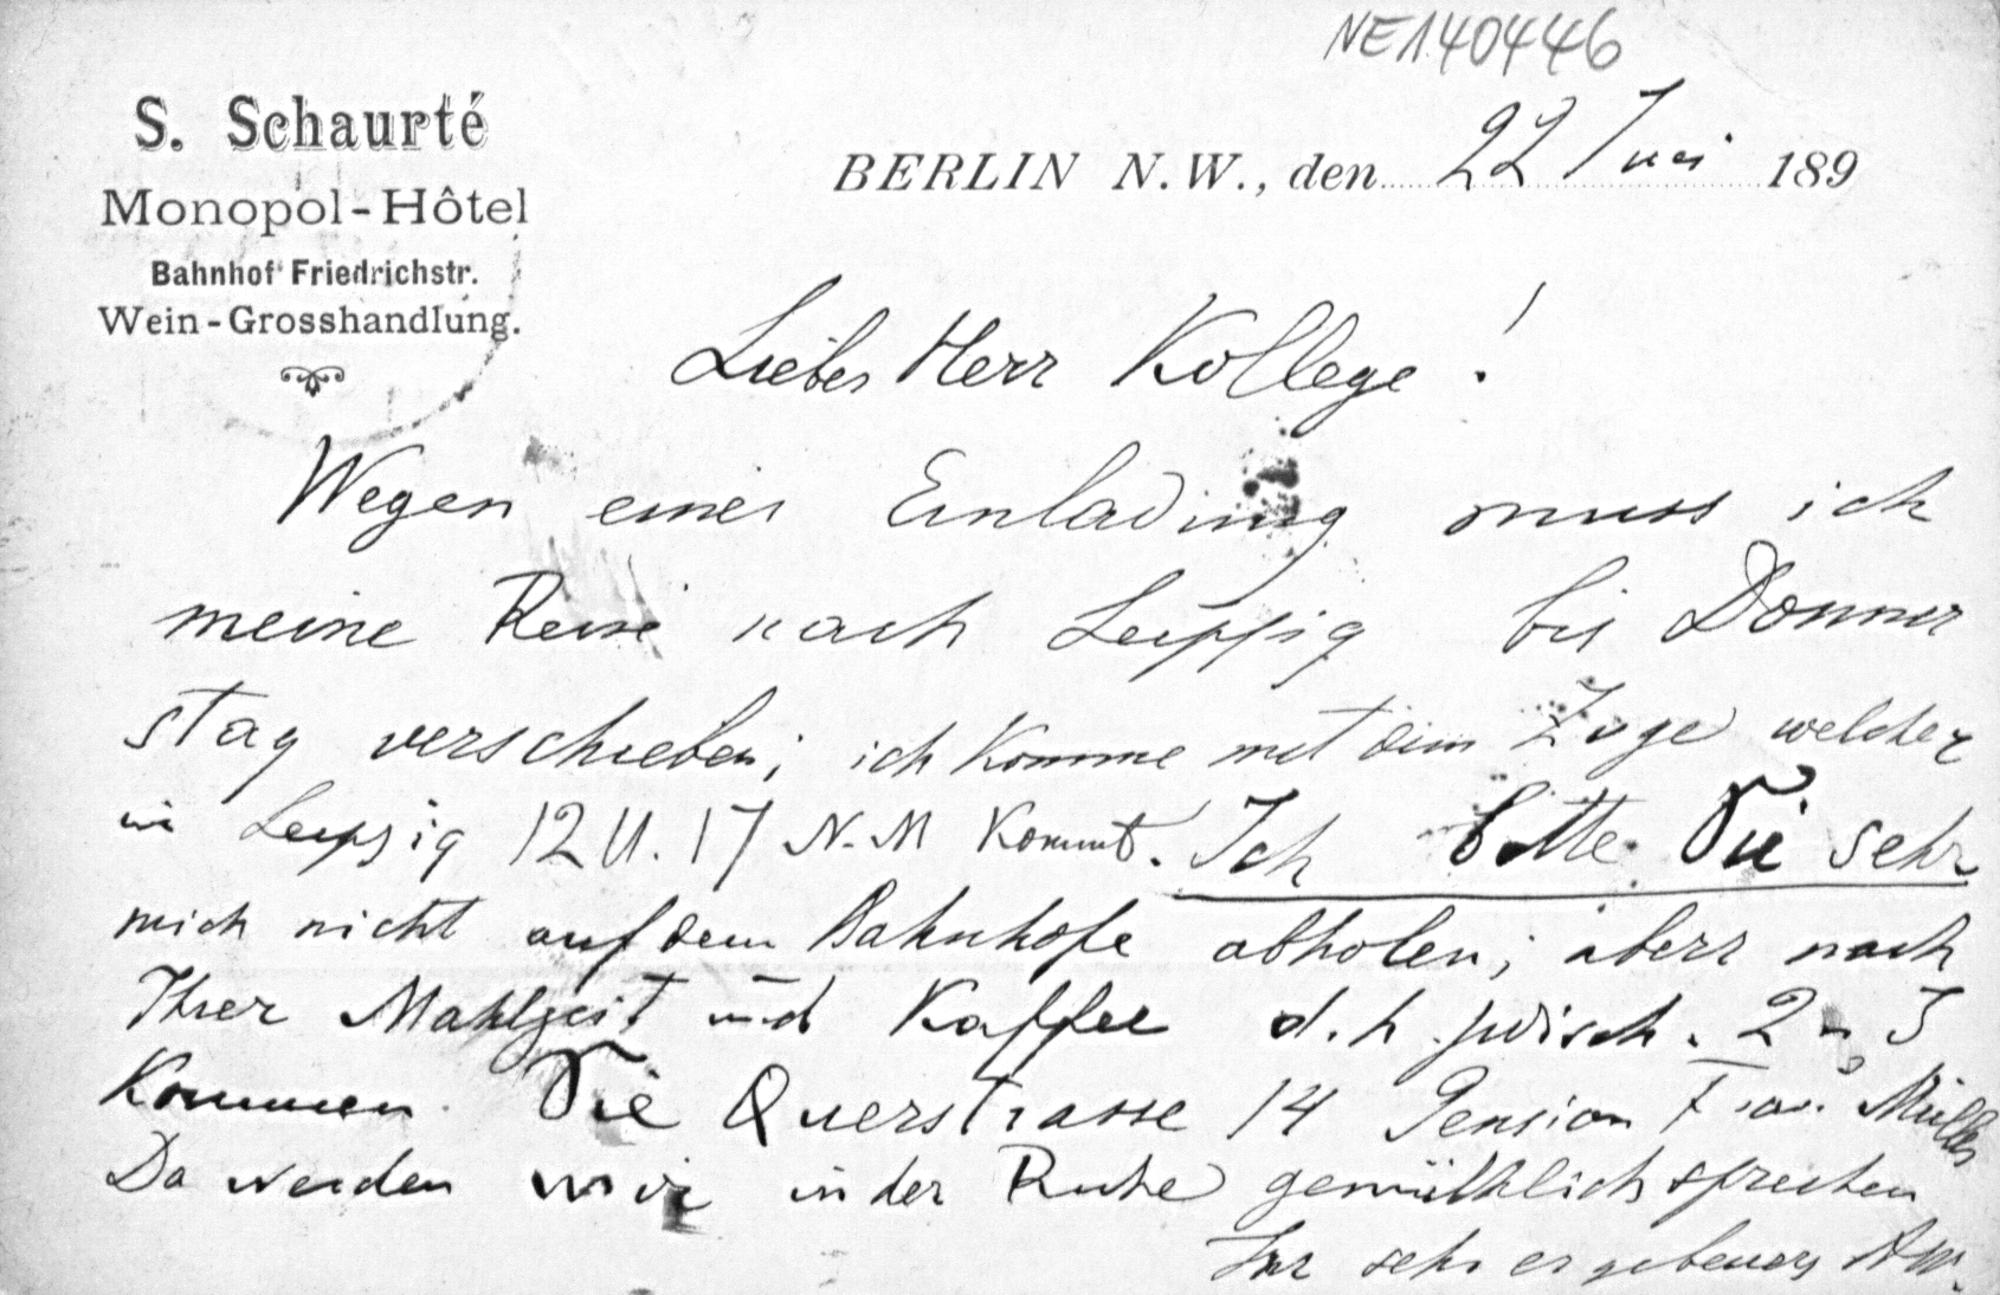 NE140446
S. Schaurté
Monopol-Hôtel
Bahnhof Friedrichstr.
Wein-Grosshandlung.
BERLIN N.W., den 22 189
Lieber Herr Kollege!
Wegen einer Einladung muss ich
meine Reise nach Leipzig bis Donner
stag verschieben; ich komme mit dem Zuge welcher
in Leipzig 12 U. 17 N.M kommt. Ich bitte Sie sehr
mich nicht auf dem Bahnhofe abholen; aber nach
Ihrer Mahlzeit und Kaffee d.h. zwisch. 2 u. 3
kommen Sie Querstrasse 14 Pension Frau Müller
Da werden wir in der Ruhe gemüthlich sprechen
Ihr sehr ergebener